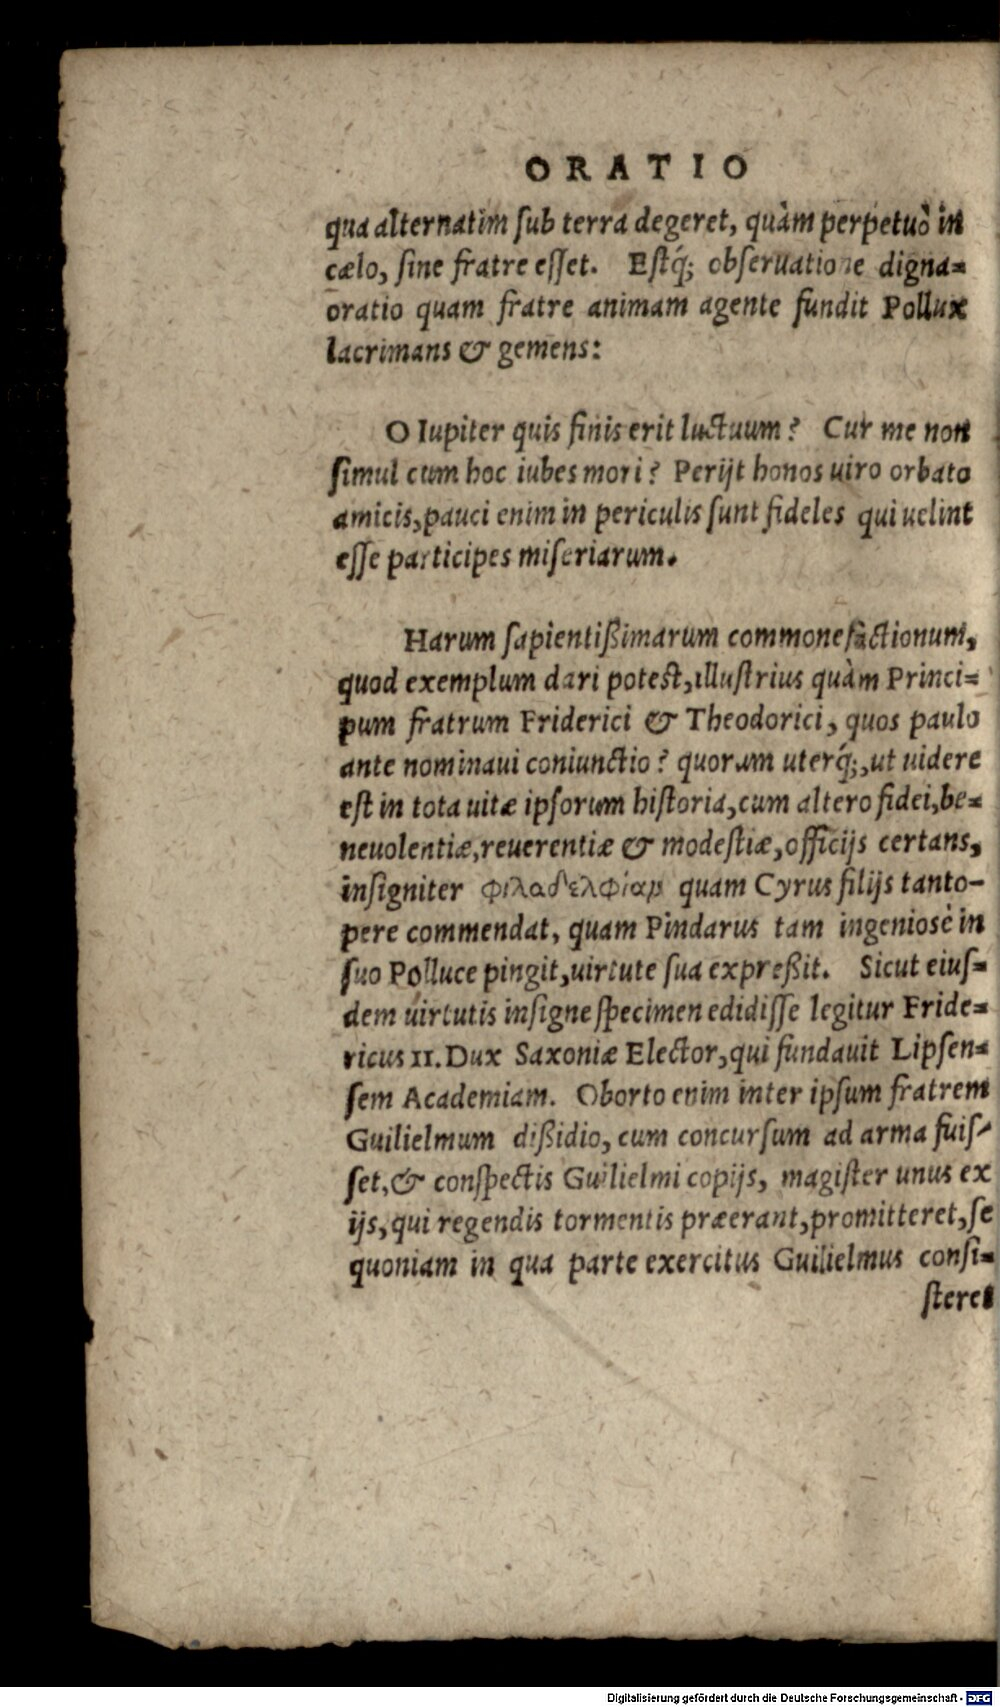 ORATIO
qua alternatim ſub terra degeret, quàm perpetuò in
cælo, ſine fratre eſſet. Eſtq́; obſeruatione digna⸗
oratio quam fratre animam agente fundit Pollux
lacrimans & gemens:
O Iupiter quis finis erit luctuum? Cur me non
ſimul cum hoc iubes mori? Perijt honos uiro orbato
amicis, pauci enim in periculis ſunt fideles qui uelint
eſſe participes miſeriarum.
Harum ſapientißimarum commonefactionum,
quod exemplum dari poteſt, illuſtrius quàm Princi⸗
pum fratrum Friderici & Theodorici, quos paulo
ante nominaui coniunctio? quorum uterq́;, ut uidere
eſt in tota uitæ ipſorum hiſtoria, cum altero fidei, be⸗
neuolentiæ, reuerentiæ & modeſtiæ, officijs certans,
inſigniter φιλαδελφίαν quam Cyrus filijs tanto-
pere commendat, quam Pindarus tam ingeniosè in
ſuo Polluce pingit, uirtute ſua expreßit. Sicut eiuſ⸗
dem uirtutis inſigne ſpecimen edidiſſe legitur Fride⸗
ricus II. Dux Saxoniæ Elector, qui fundauit Lipſen⸗
ſem Academiam. Oborto enim inter ipſum fratrem
Guilielmum dißidio, cum concurſum ad arma fuiſ-
ſet, & conſpectis Guilielmi copijs, magiſter unus ex
ijs, qui regendis tormentis præerant, promitteret, ſe
quoniam in qua parte exercitus Guilielmus conſi⸗
ſteret
Digitalisierung gefördert durch die Deutsche Forschungsgemeinschaft - DFG